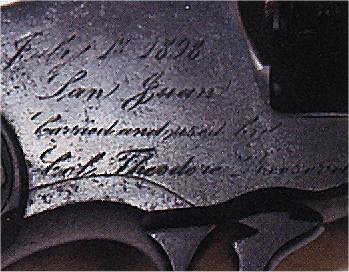 July 1st 1898
San Juan
Carried and used by
Col. Theodore Roosevel